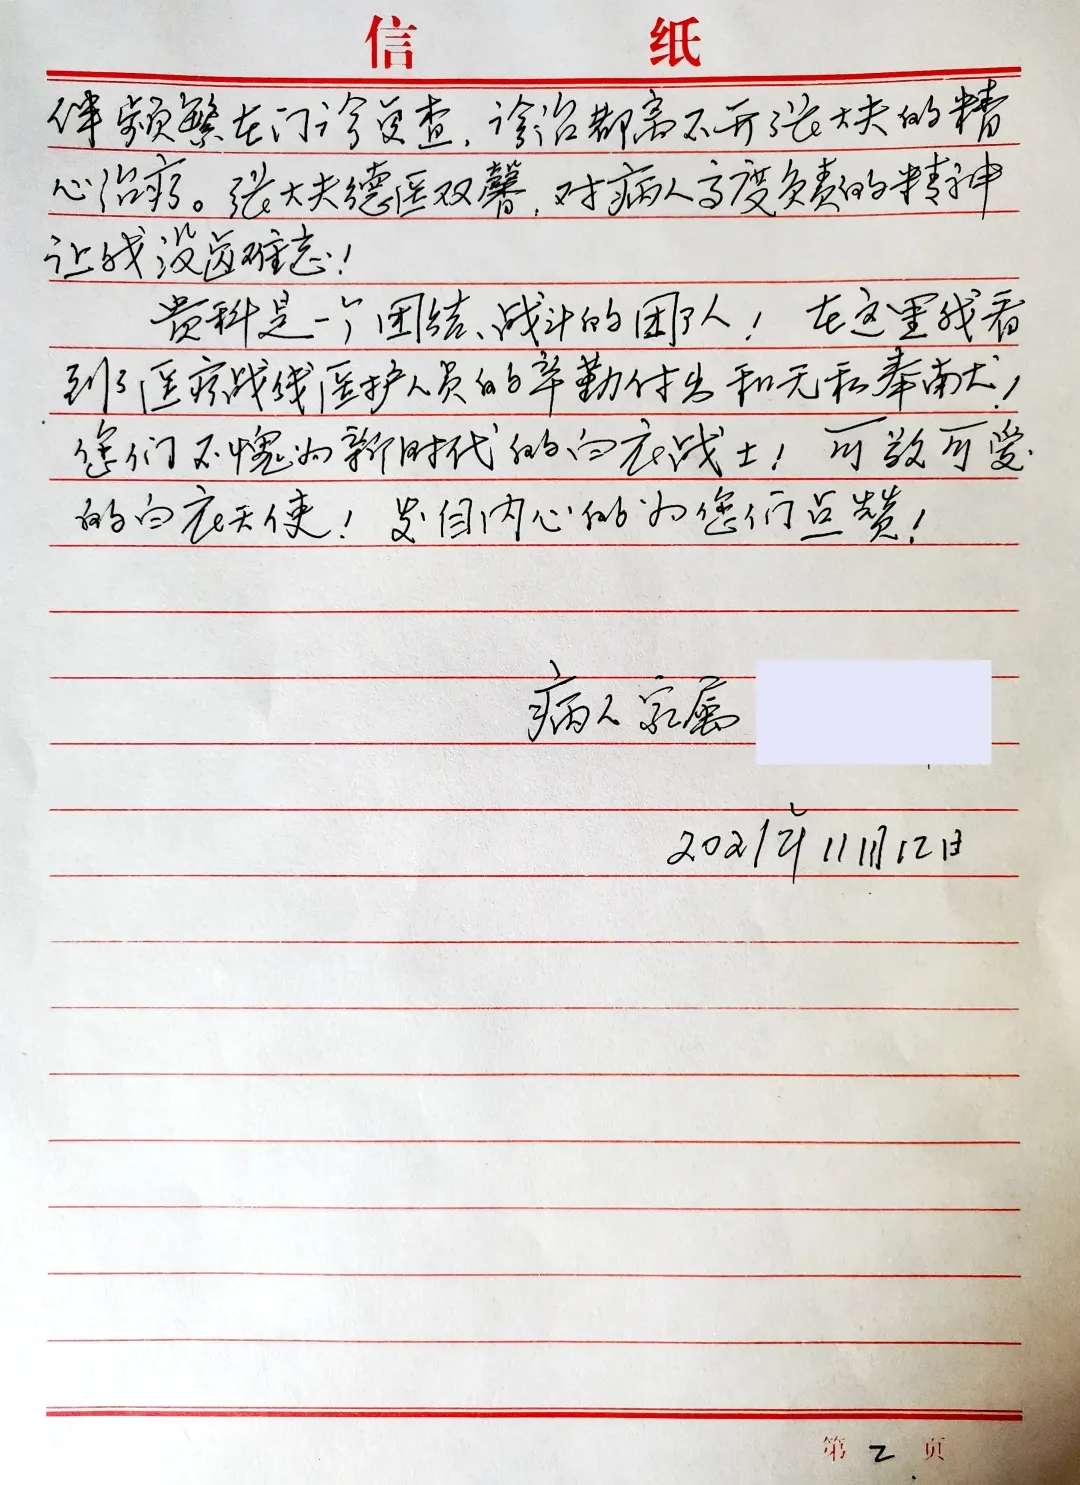 信 纸
伴频繁在门诊复查，诊治都离不开张大夫的精
心治疗。张大夫德医双馨，对病人高度负责的精神
让我没齿难忘！
贵科是一个团结、战斗的团队！在这里我看
到了医疗战线医护人员的辛勤付出和无私奉献！
您们不愧为新时代的白衣战士！可敬可爱
的白衣天使！发自内心的为您们点赞！
病人家属
2021年11月12日
第 2 页